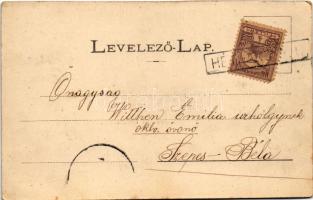 LEVELEZŐ-LAP.
HÉ
Onagyság
Witthen Emilia urhölgynek
okl. óvonő
Szepes-Béla